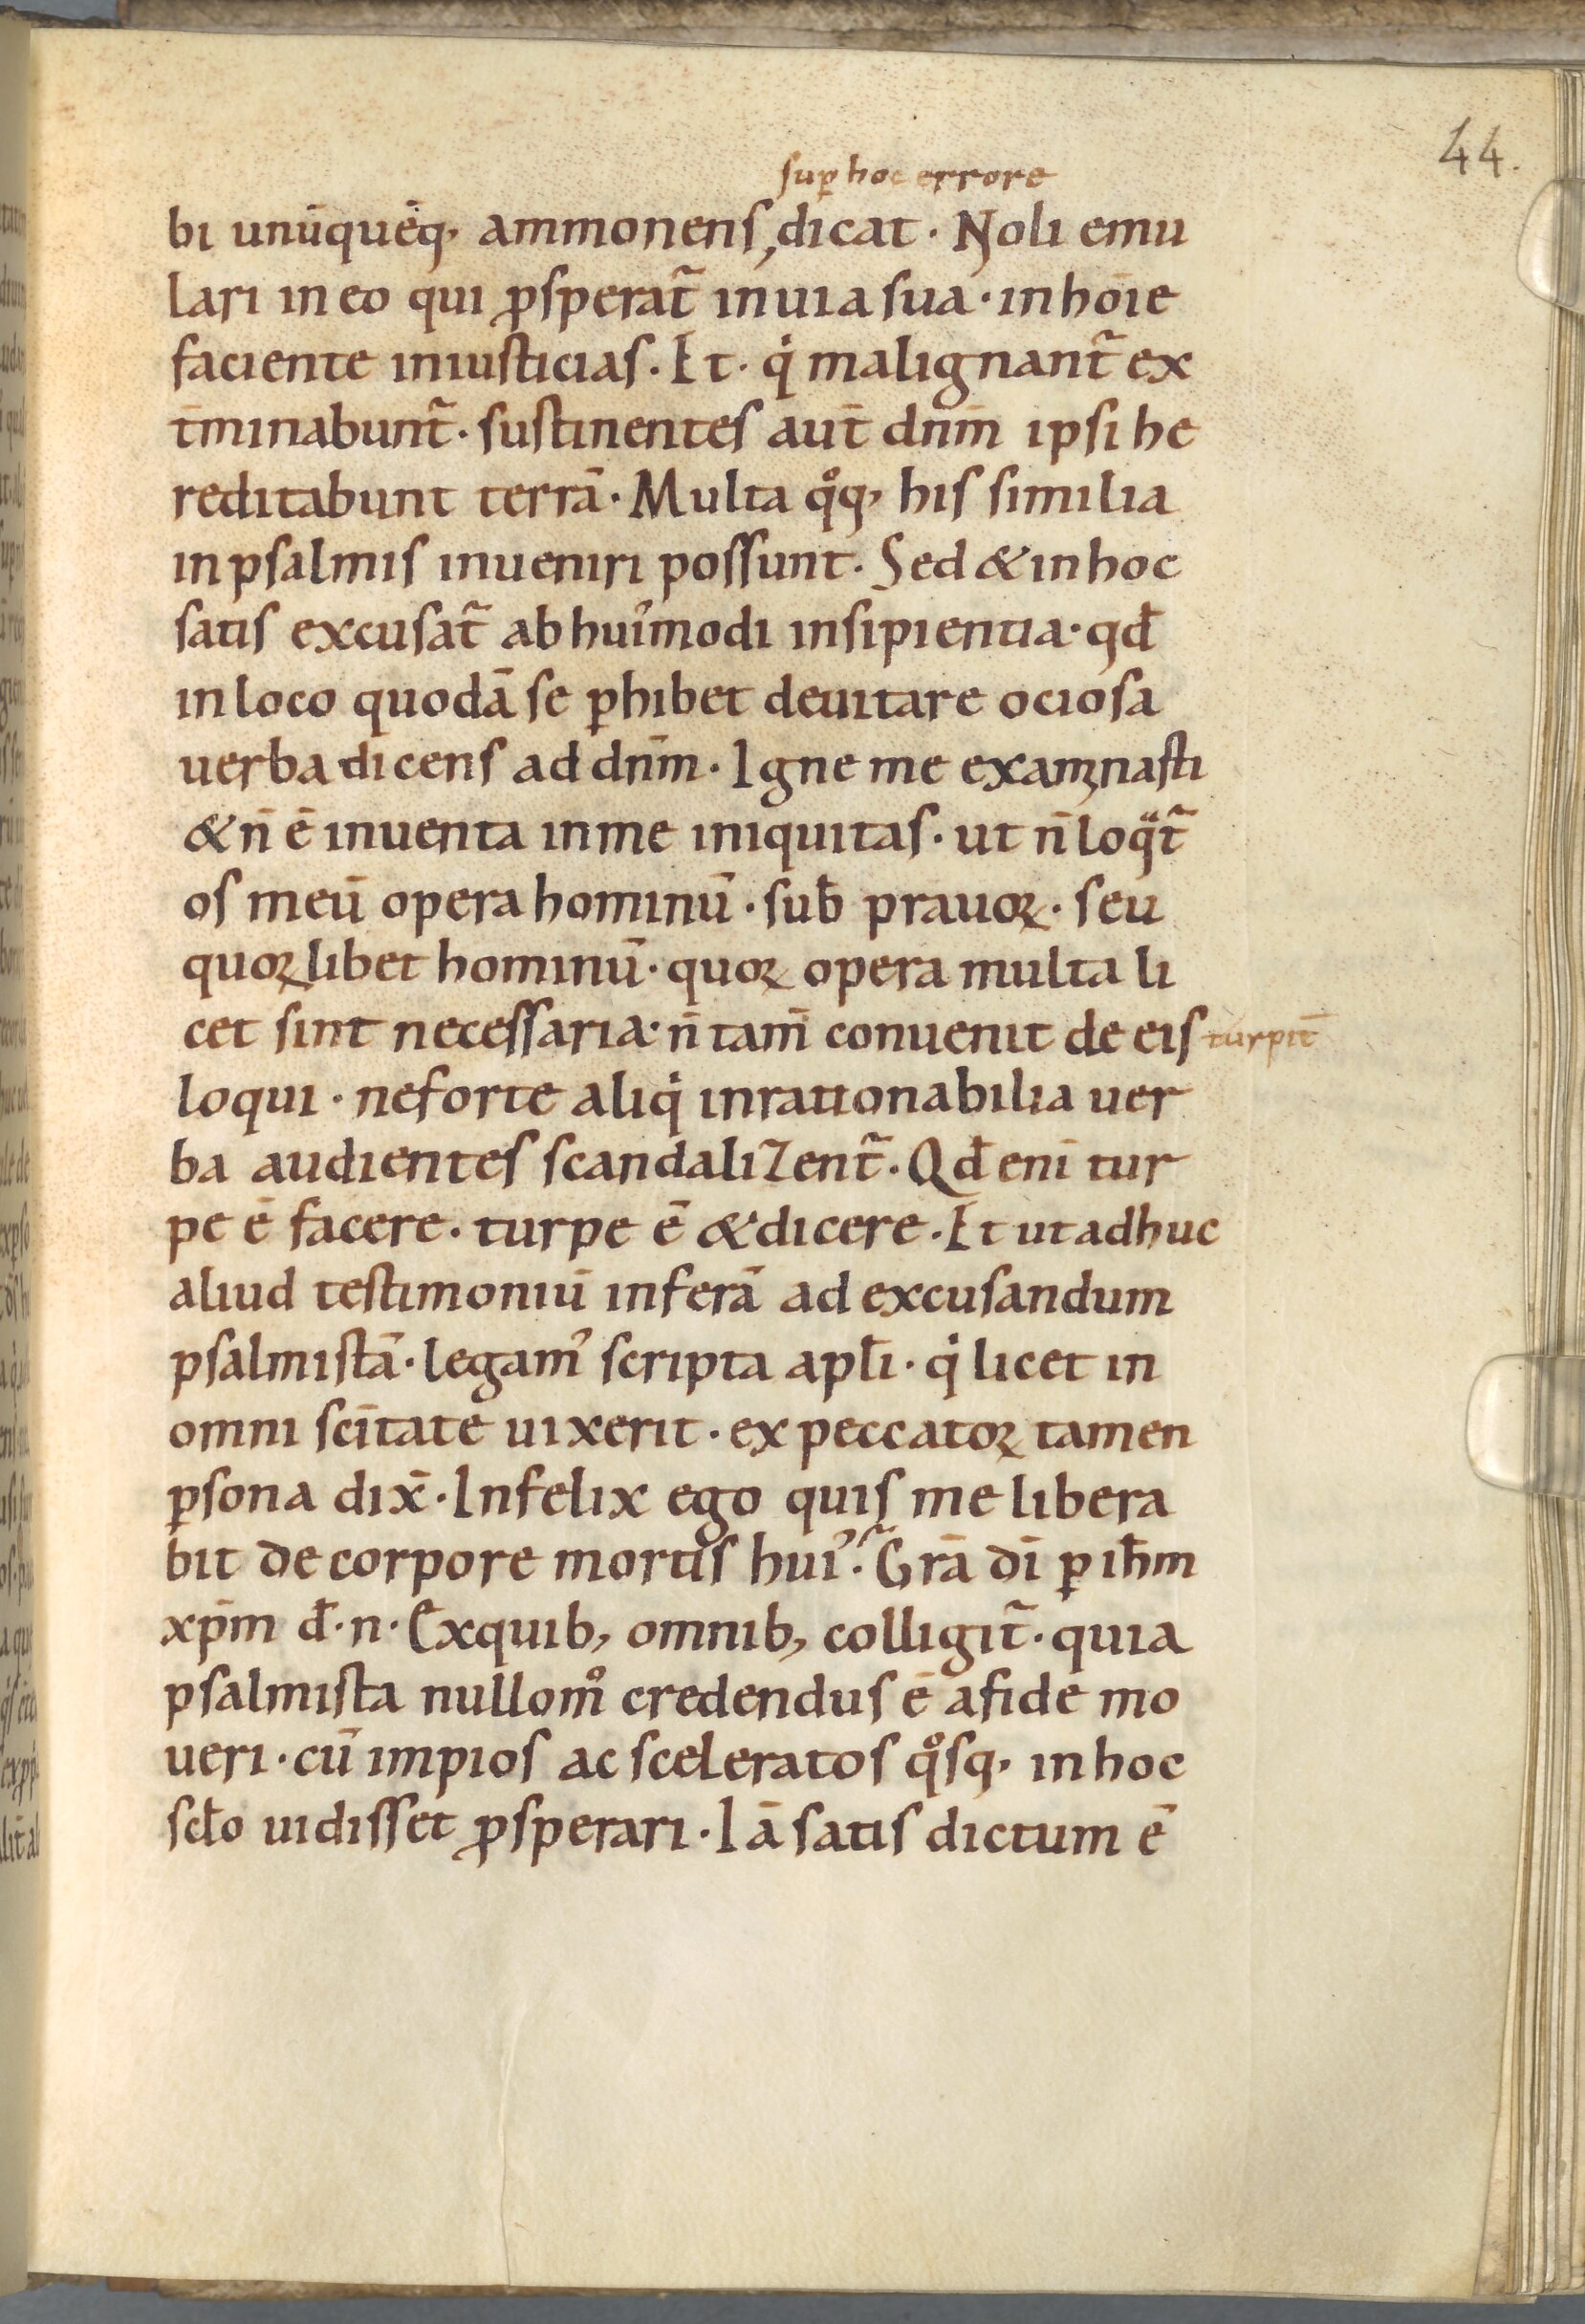 44.
sup̱ hoc errore
bi unūquēq; ammonens, dicat · Noli emu
lari in eo qui ꝓsperat̃ in uia sua · in hoīe
faciente iniusticias. Et · qͥ malignant̃ ex
t̄minabunt̃ · sustinentes aut̄ dn̄m ipsi he
reditabunt terrā · Multa qͦq; his similia
in psalmis inueniri possunt. Sed & in hoc
satis excusat̃ ab hui᾽modi insipientia · qđ
in loco quodā se ꝑhibet deuitare ociosa
uerba dicens ad dn̄m · Igne me examinasti
& n̄ ē inuenta in me iniquitas · ut n̄ loqᵃt̃
os meū opera hominū · sub̄ prauoꝝ · seu
quoꝝlibet hominū · quoꝝ opera multa li
cet sint necessaria · n̄ tam̄ conuenit de eis turpit̄
loqui · ne forte aliqͥ inrationabilia uer
ba audientes scandalizent̃ · Qđ eni̅ tur
pe ē facere · turpe ē & dicere · Et ut adhuc
aliud testimoniū inferā ad excusandum
psalmistā · legam᾽ scripta apl̄i · qͥ licet in
omni sc̄itate uixerit · ex peccatoꝝ tamen
ꝑsona dix̄ · Infelix ego quis me libera
bit de corpore mortis hui᾽ · Grā dī ꝑ ih̄m
xp̄m d̄ · n · Ex quib; omnib; colligit̃ · quia
psalmista nullomͦ credendus ē a fide mo
ueri · cū impios ac sceleratos qͦsq; in hoc
scło uidisset ꝓsperari · Iā satis dictum ē